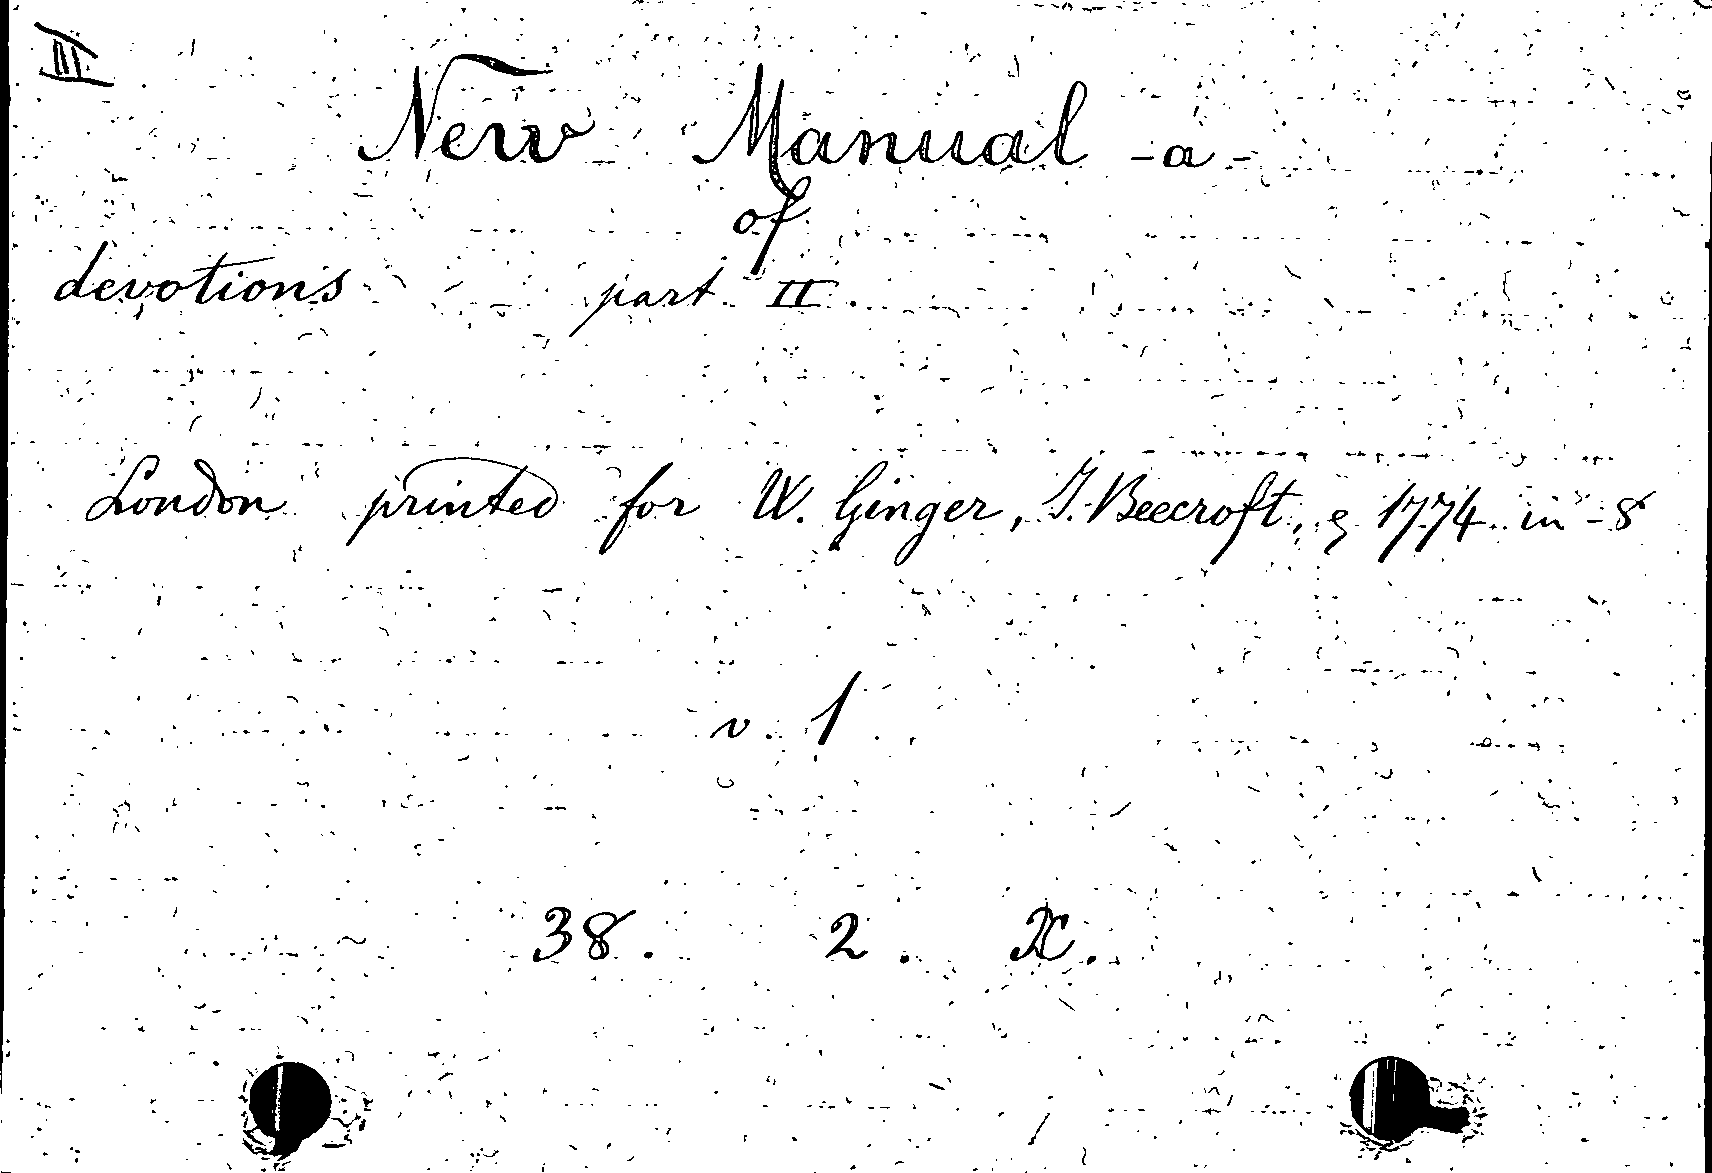 III
New Manual - a -
of
devotions part II.
London printed for W. Ginger, J. Beecroft, & 1774 in - 8
v. 1
38. 2. X.